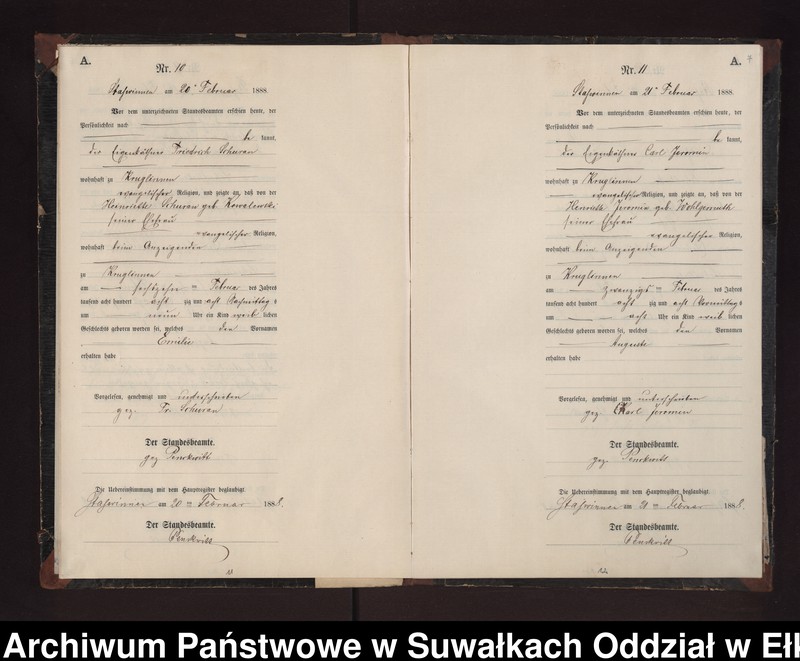 A.
Nr. 10
Staßwinnen am 20ten Februar 1888.
Vor dem unterzeichneten Standesbeamten erschien heute, der
Persönlichkeit nach
be kannt,
der Eigenkäthner Friedrich Schuran
wohnhaft zu Kruglinnen
evangelischer Religion, und zeigte an, daß von der
Henriette Schuran geb. Kowalewski
seiner Ehefrau
evangelischer Religion,
wohnhaft beim Anzeigenden
zu Kruglinnen
am sechszehnten Februar des Jahres
tausend acht hundert acht zig und acht Nachmittags
um neun Uhr ein Kind weib lichen
Geschlechts geboren worden sei, welches den Vornamen
Emilie
erhalten habe
Vorgelesen, genehmigt und unterschrieben
gez. Fr. Schuran
Der Standesbeamte.
gez. Penckwitt
Die Uebereinstimmung mit dem Hauptregister beglaubigt.
Staßwinnen am 20ten Februar 1888.
Der Standesbeamte.
Penckwitt
A.
7
Nr. 11
Staßwinnen am 21ten Februar 1888.
Vor dem unterzeichneten Standesbeamten erschien heute, der
Persönlichkeit nach
be kannt,
der Eigenkäthner Carl Jeromin
wohnhaft zu Kruglinnen
evangelischer Religion, und zeigte an, daß von der
Henriette Jeromin geb. Wohlgemuth
seiner Ehefrau
evangelischer Religion,
wohnhaft beim Anzeigenden
zu Kruglinnen
am zwanzigsten Februar des Jahres
tausend acht hundert acht zig und acht Vormittags
um acht Uhr ein Kind weib lichen
Geschlechts geboren worden sei, welches den Vornamen
Auguste
erhalten habe
Vorgelesen, genehmigt und unterschrieben
gez. Karl Jeromin
Der Standesbeamte.
gez. Penckwitt
Die Uebereinstimmung mit dem Hauptregister beglaubigt.
Staßwinnen am 21ten Februar 1888.
Der Standesbeamte.
Penckwitt
Archiwum Państwowe w Suwałkach Oddział w Ełk